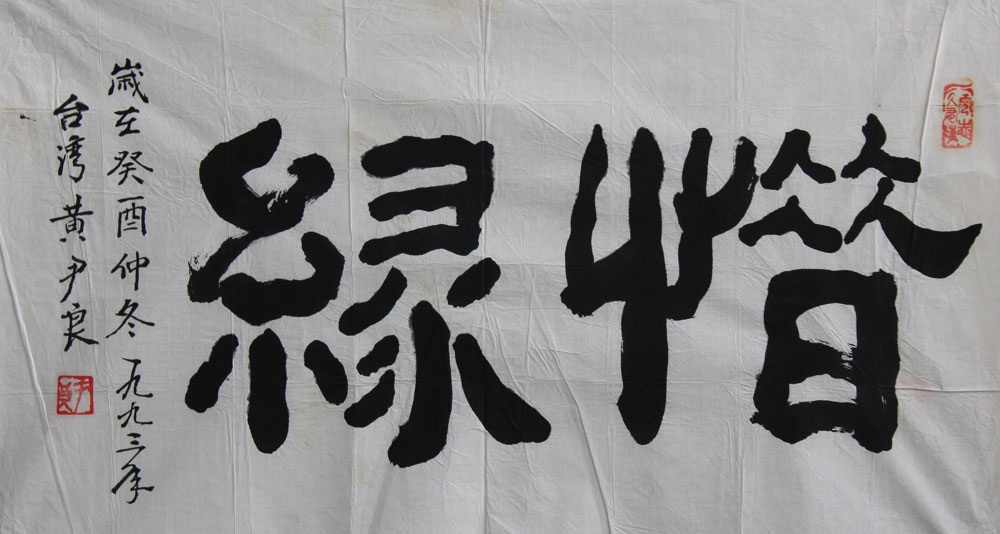 惜緣
歲在癸酉仲冬一九九三年
台灣黃尹良